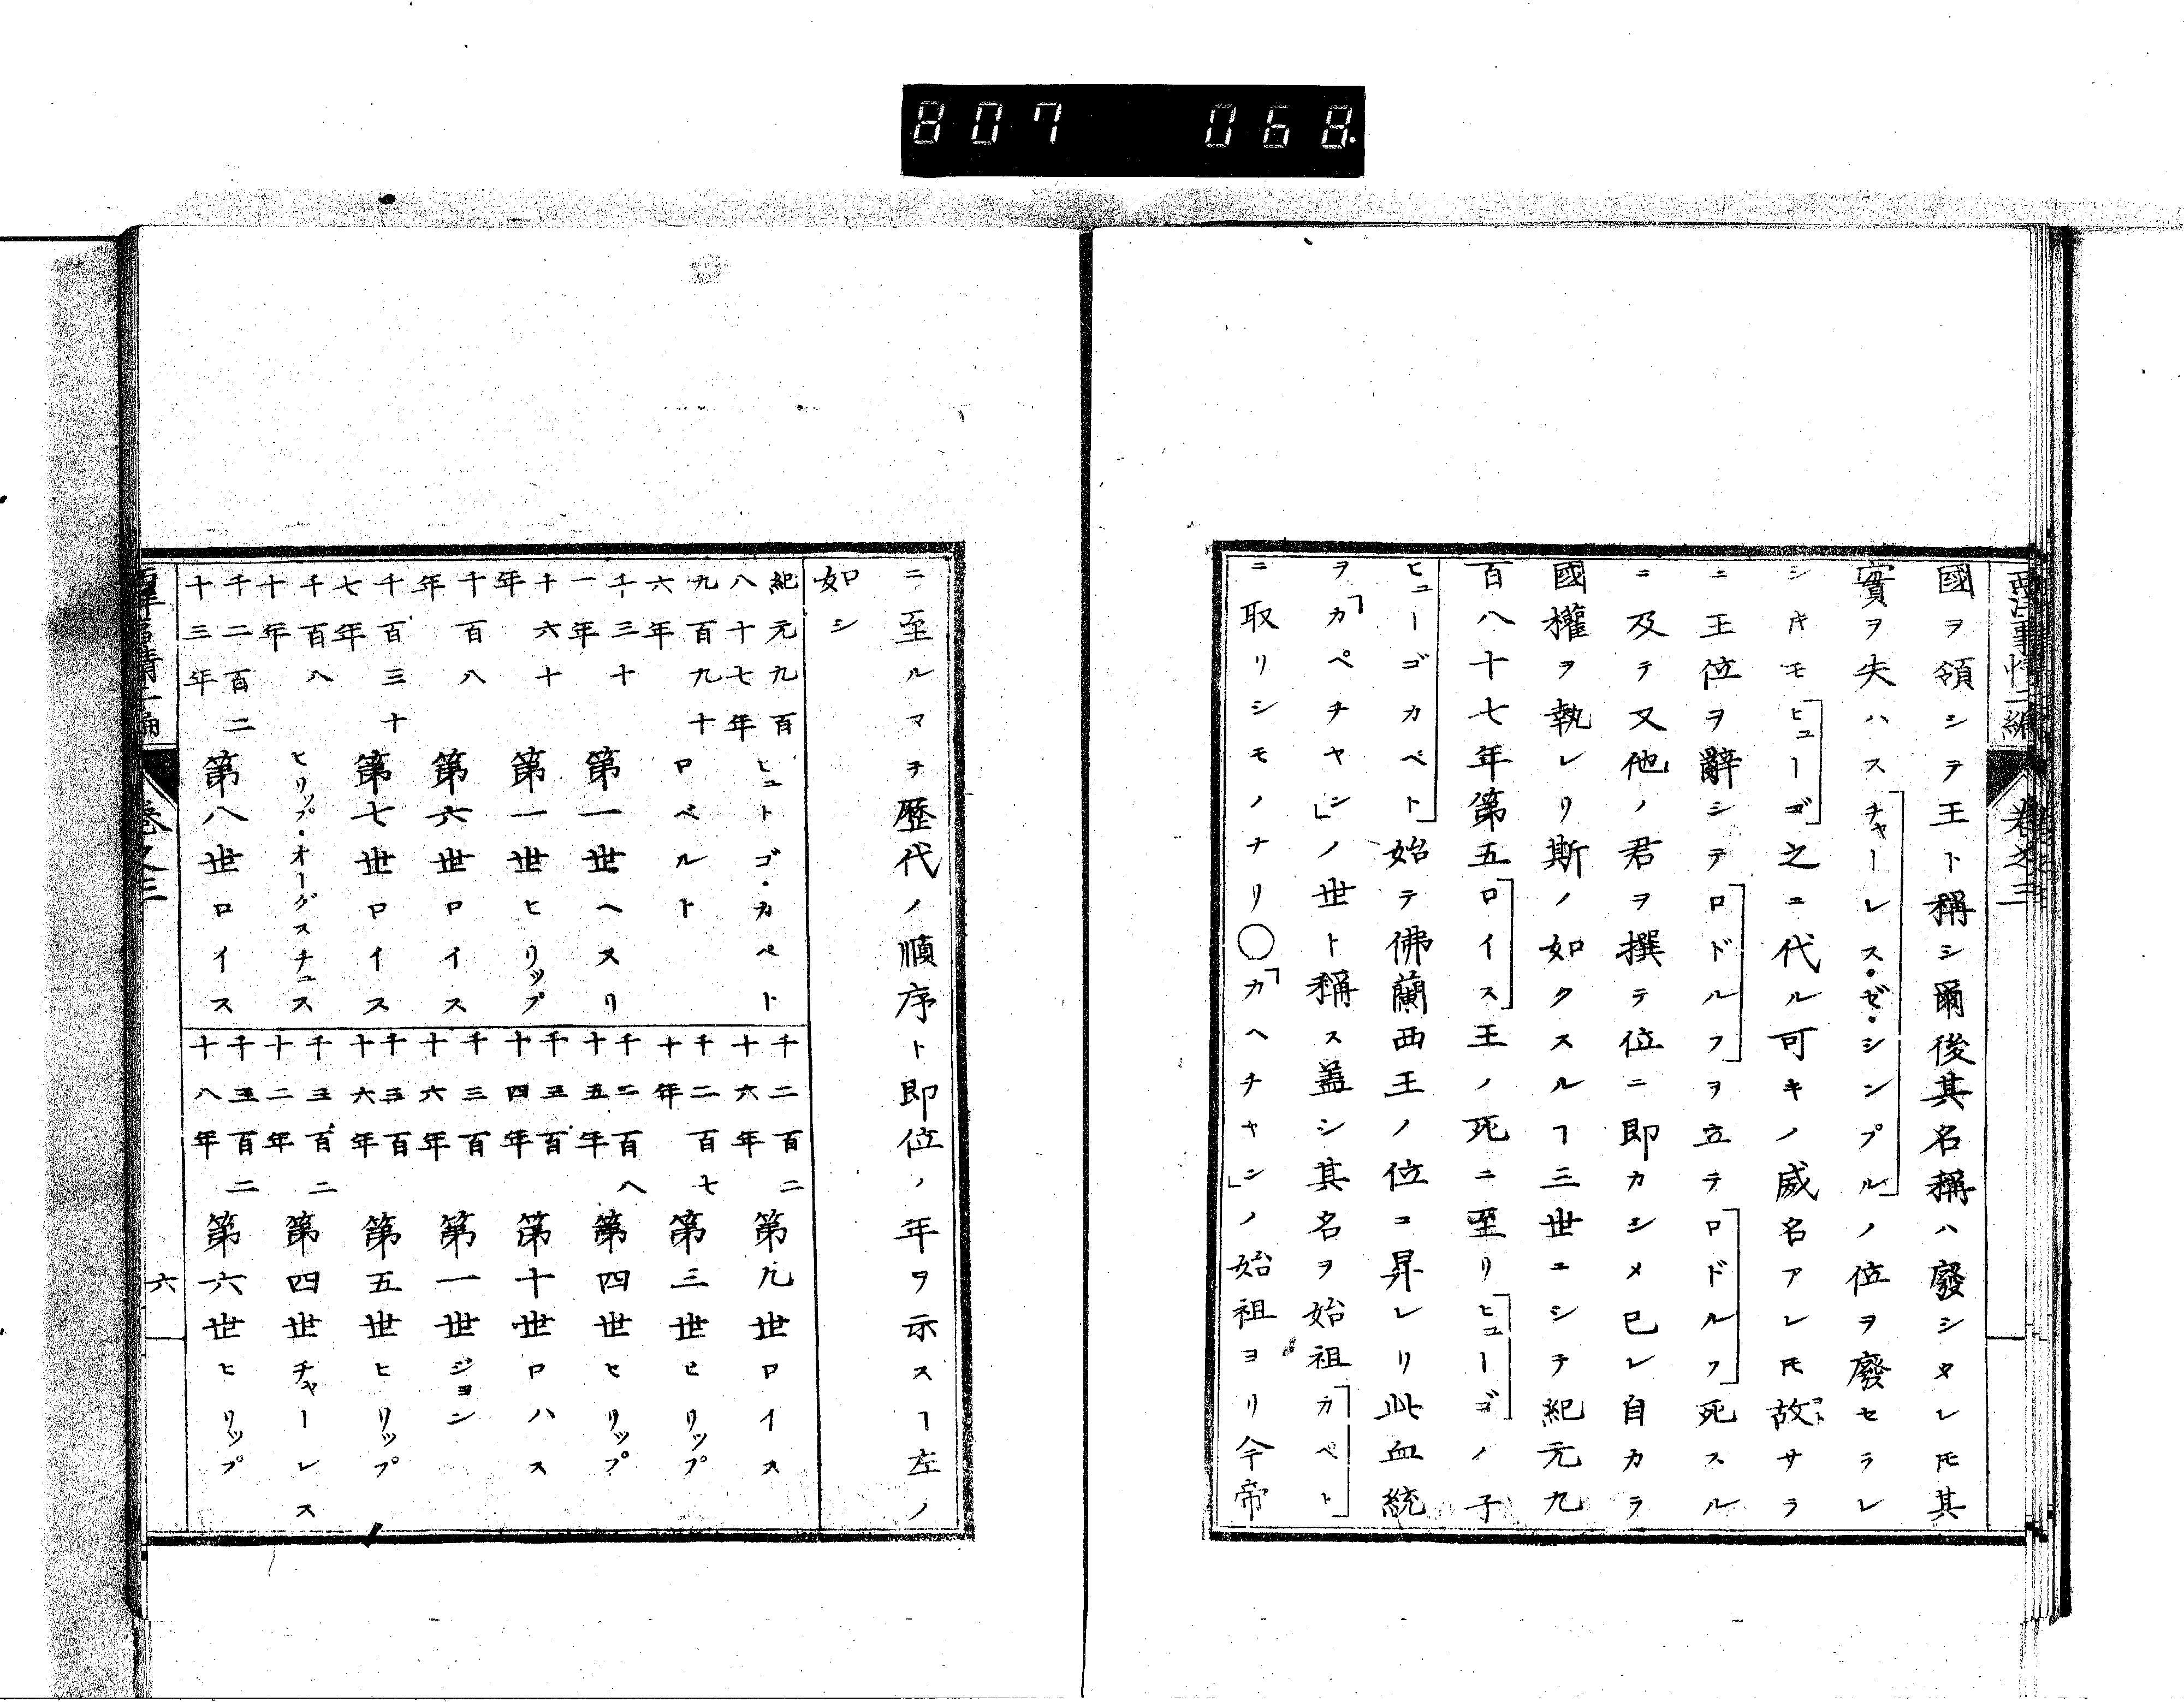 807 068
西洋事情二編 卷之三
國ヲ領シテ王ト稱シ爾後其名稱ハ廢シタレ𪜈其
實ヲ失ハスチャーレス・ゼ・シンプルノ位ヲ廢セラレ
シ𪜈ヒューゴ之ニ代ル可キノ威名アレ𪜈故サラ
ニ王位ヲ辭シテロドルフヲ立テロドルフ死スル
ニ及テ又他ノ君ヲ撰テ位ニ即カシメ已レ自カラ
國權ヲ執レリ斯ノ如クスルヿ三世ニシテ紀元九
百八十七年第五ロイス王ノ死ニ至リヒューゴノ子
ヒューゴカペト始テ佛蘭西王ノ位ニ昇レリ此血統
ヲ「カペチヤン」ノ世ト稱ス蓋シ其名ヲ始祖カペト
ニ取リシモノナリ○「カヘチヤン」ノ始祖ヨリ今帝
ニ至ルマヲ歷代ノ順序ト即位ノ年ヲ示スヿ左ノ
如シ
紀元九百八十七年 ヒュトゴ・カペト
九百九十六年 ロベルト
千三十一年 第一世ヘヌリ
千六十年 第一世ヒリップ
千百八年 第六世ロイス
千百三十七年 第七世ロイス
千百八十年 ヒリップ・オーグスチュス
千二百二十三年 第八世ロイス
千二百二十六年 第九世ロイス
千二百七十年 第三世ヒリップ
千二百八十五年 第四世ヒリップ
千三百十四年 第十世ロハス
千三百十六年 第一世ジヨン
千三百十六年 第五世ヒリップ
千三百二十二年 第四世チャーレス
千三百二十八年 第六世ヒリップ
西洋事情二編 卷之三 六